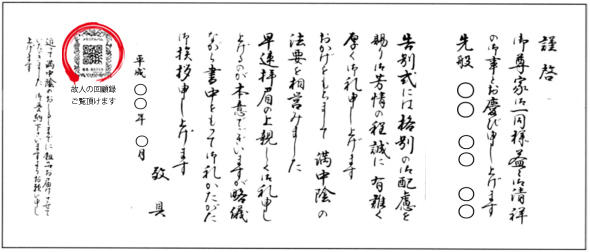 謹啓
御尊家御一同様益々御清祥
の御事とお慶び申し上げます
先般 〇〇 〇〇 〇〇
告別式には格別の御配慮を
賜り御芳情の程誠に有難く
厚く御礼申し上げます
おかげをもちまして 満中陰の
法要を相営みました
早速拝眉の上親しく御礼申し
上げるのが本意でございますが略儀
ながら書中をもって御礼かたがた
御挨拶申し上げます
敬具
平成〇〇年〇月
故人の回顧録
ご覧頂けます
追って満中陰のおしるしまでに粗品お届けさせて
いただきました 御受納下さいますようお願い申し
上げます